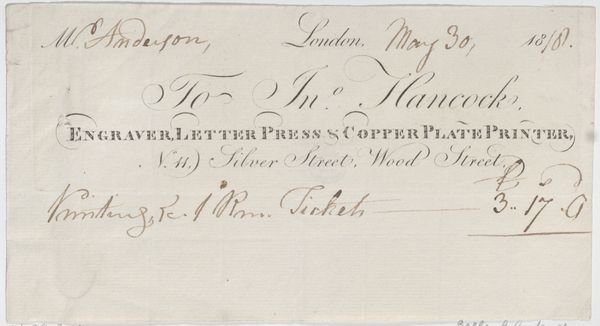 Mr. Anderson, London, May 30, 1818.
To Jno. Hancock,
ENGRAVER, LETTER PRESS & COPPER PLATE PRINTER,
No. 11, Silver Street, Wood Street.
£ s d
Printing &c. 1 Rm. Tickets 3 .. 17 .